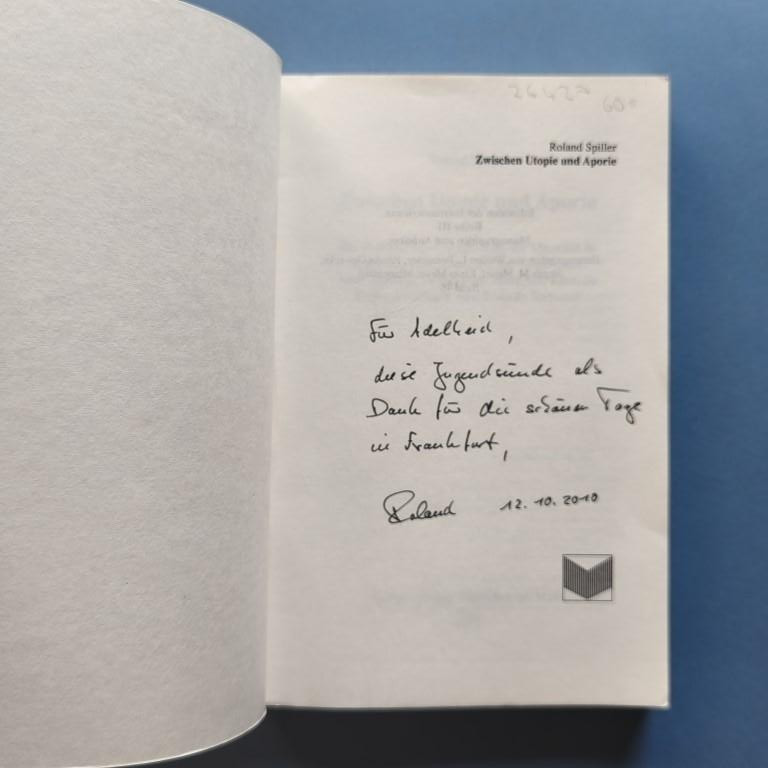 2642
60
Roland Spiller
Zwischen Utopie und Aporie
Für Adelheid,
diese Jugendsünde als
Dank für die schönen Tage
in Frankfurt,
Roland 12.10.2010